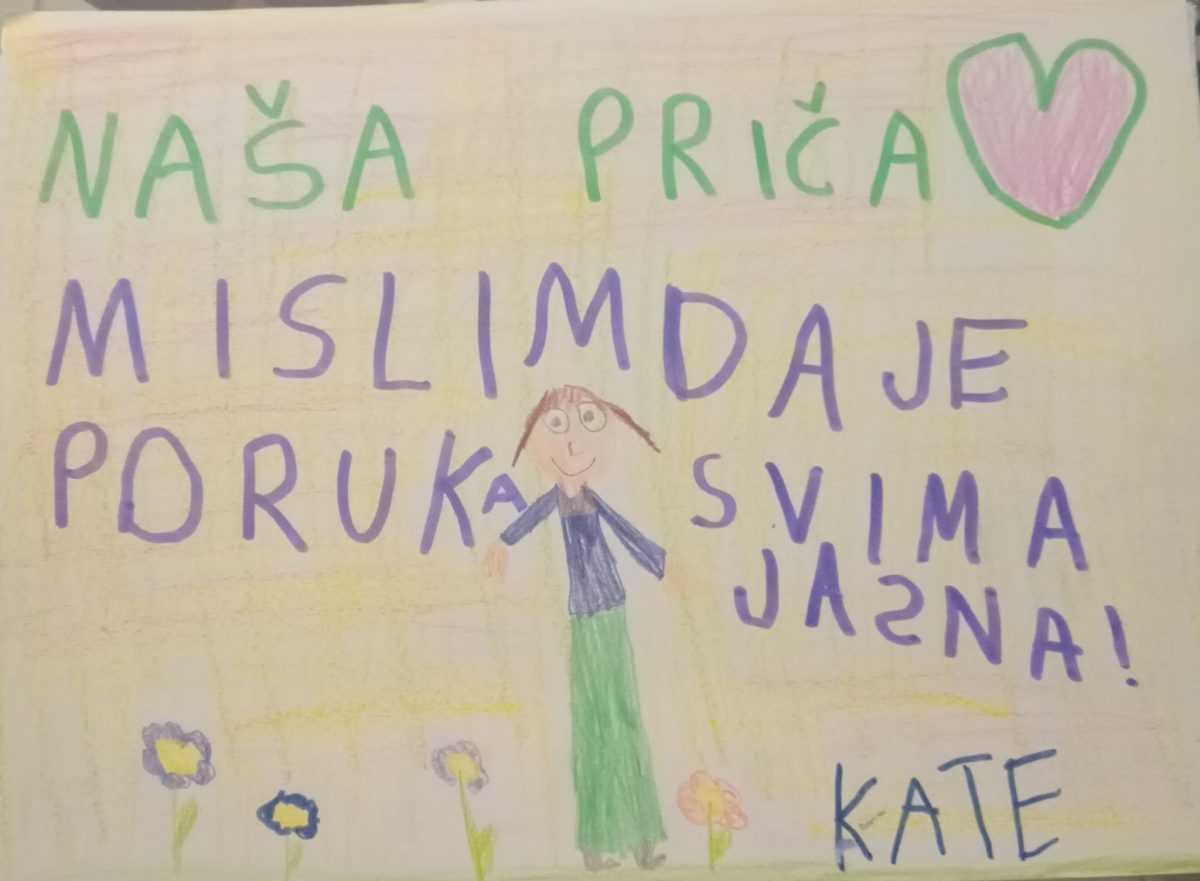 NAŠA PRIČA
MISLIM DA JE
PORUKA SVIMA
JASNA!
KATE